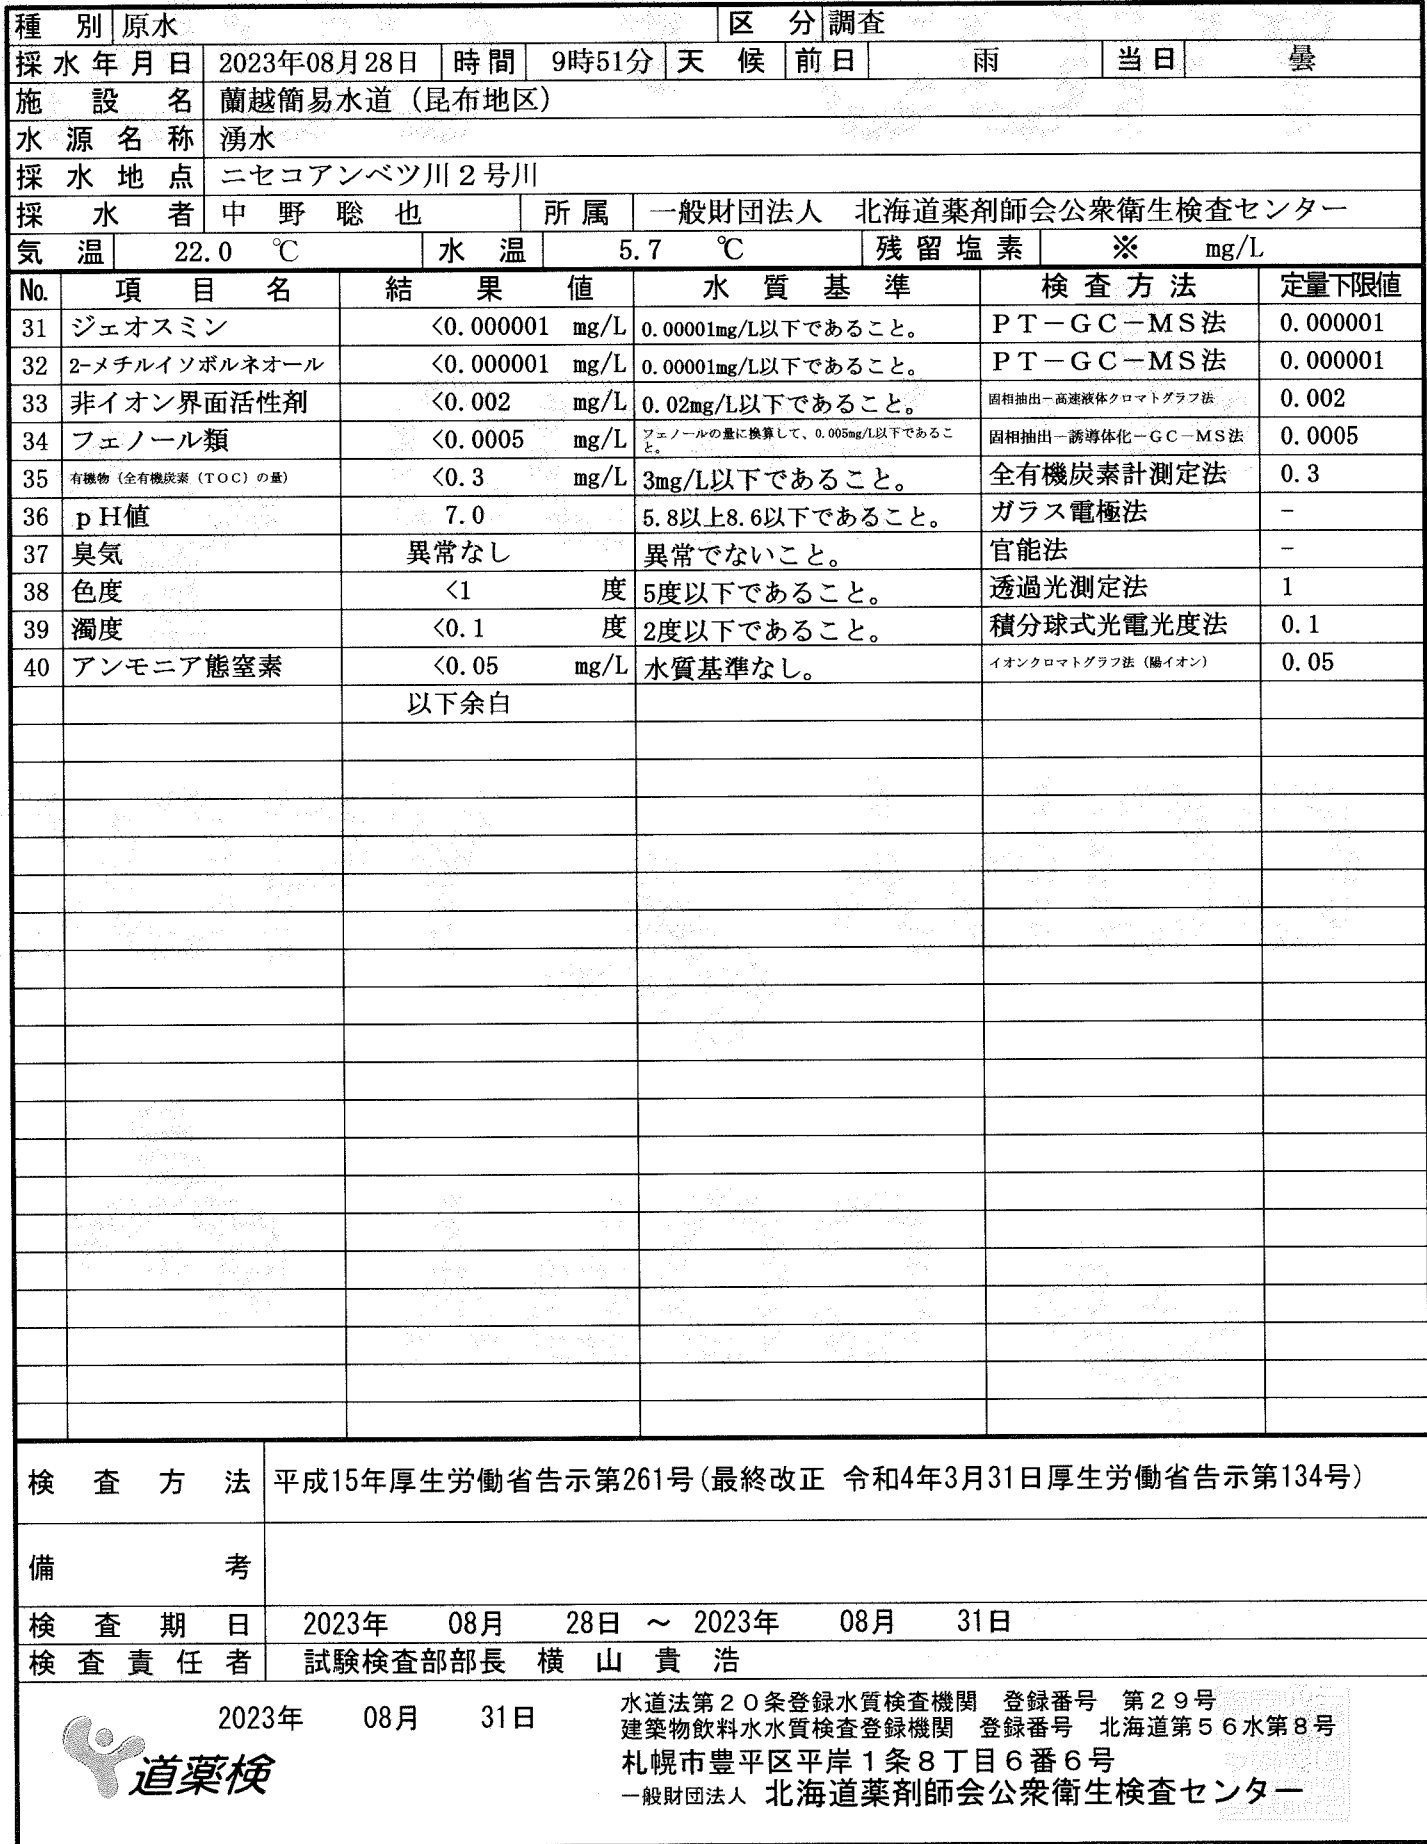 種 別 原水 区 分 調査
採水年月日 2023年08月28日 時間 9時51分 天 候 前日 雨 当日 曇
施 設 名 蘭越簡易水道（昆布地区）
水 源 名 称 湧水
採 水 地 点 ニセコアンベツ川２号川
採 水 者 中 野 聡 也 所属 一般財団法人 北海道薬剤師会公衆衛生検査センター
気 温 22.0 ℃ 水 温 5.7 ℃ 残留塩素 ※ mg/L
No. 項 目 名 結 果 値 水 質 基 準 検査方法 定量下限値
31 ジェオスミン <0.000001 mg/L 0.00001mg/L以下であること。 ＰＴ－ＧＣ－ＭＳ法 0.000001
32 2-メチルイソボルネオール <0.000001 mg/L 0.00001mg/L以下であること。 ＰＴ－ＧＣ－ＭＳ法 0.000001
33 非イオン界面活性剤 <0.002 mg/L 0.02mg/L以下であること。 固相抽出－高速液体クロマトグラフ法 0.002
34 フェノール類 <0.0005 mg/L フェノールの量に換算して、0.005mg/L以下であること。 固相抽出－誘導体化－ＧＣ－ＭＳ法 0.0005
35 有機物（全有機炭素（ＴＯＣ）の量） <0.3 mg/L 3mg/L以下であること。 全有機炭素計測定法 0.3
36 ｐＨ値 7.0 5.8以上8.6以下であること。 ガラス電極法 －
37 臭気 異常なし 異常でないこと。 官能法 －
38 色度 <1 度 5度以下であること。 透過光測定法 1
39 濁度 <0.1 度 2度以下であること。 積分球式光電光度法 0.1
40 アンモニア態窒素 <0.05 mg/L 水質基準なし。 イオンクロマトグラフ法（陽イオン） 0.05
以下余白
検 査 方 法 平成15年厚生労働省告示第261号(最終改正 令和4年3月31日厚生労働省告示第134号)
備 考
検 査 期 日 2023年 08月 28日 ～ 2023年 08月 31日
検 査 責 任 者 試験検査部部長 横 山 貴 浩
2023年 08月 31日
水道法第２０条登録水質検査機関 登録番号 第２９号
建築物飲料水水質検査登録機関 登録番号 北海道第５６水第８号
札幌市豊平区平岸１条８丁目６番６号
一般財団法人 北海道薬剤師会公衆衛生検査センター
道薬検